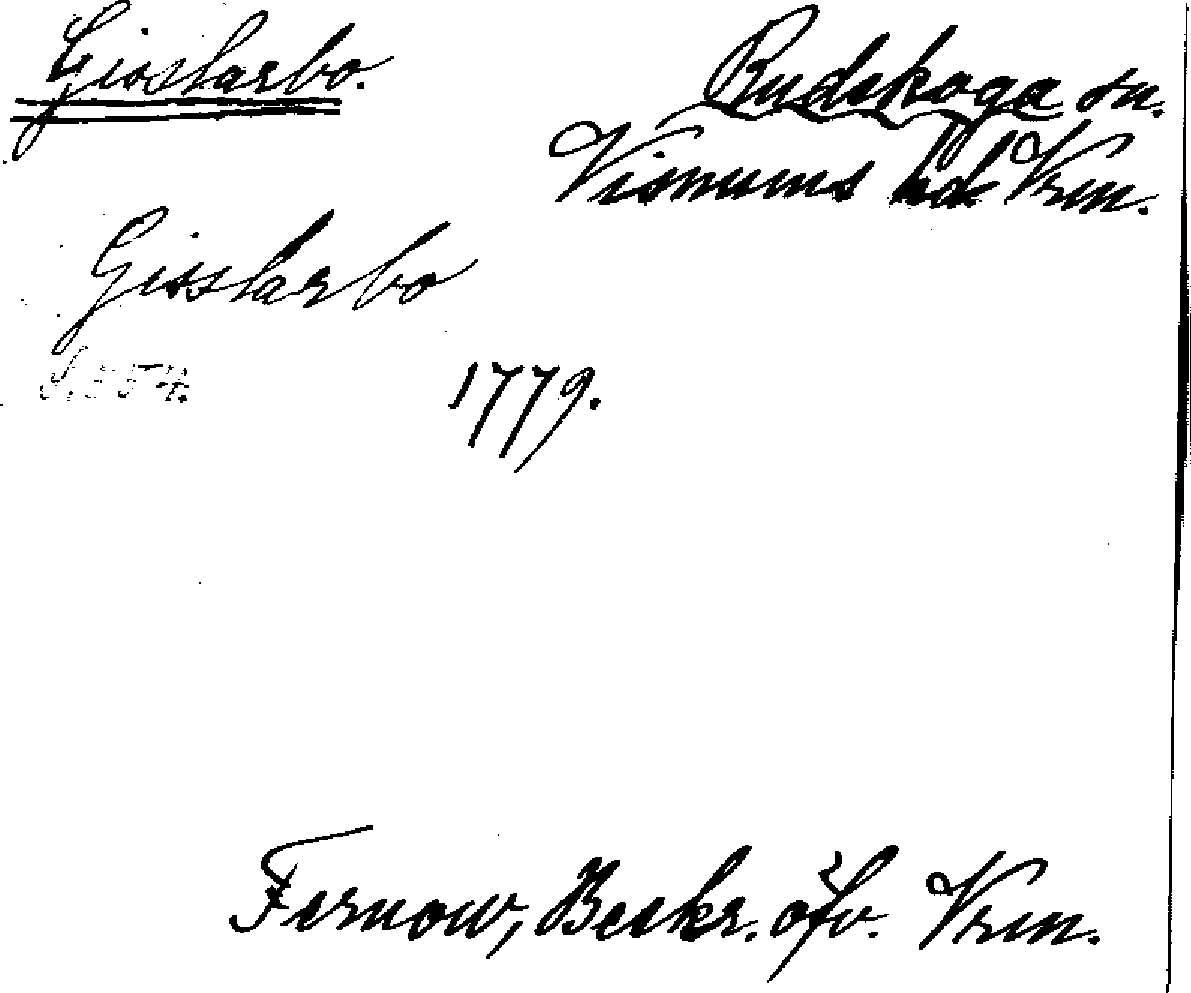 Gisslarbo.
Rudskoga sn.
Visnums hd Vrm.
Gisslarbo
S. 554.
1779.
Fernow, Beskr. öfv. Vrm.